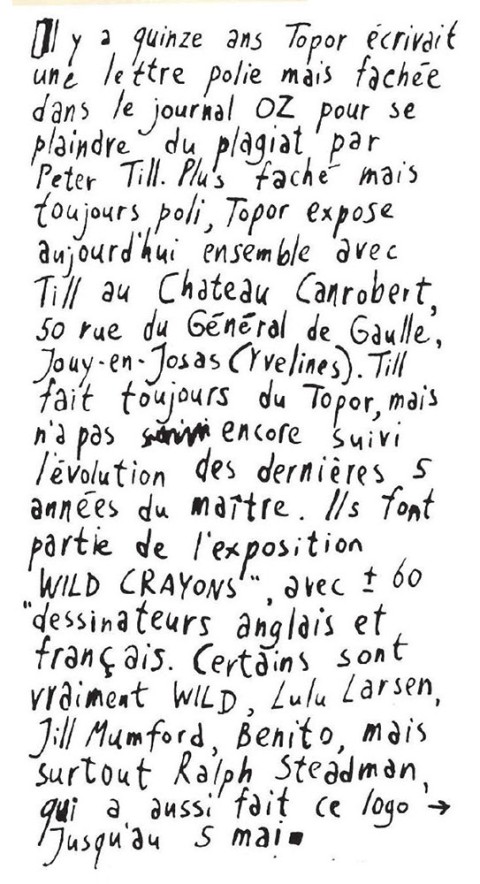 Il y a quinze ans Topor écrivait
une lettre polie mais fachée
dans le journal OZ pour se
plaindre du plagiat par
Peter Till. Plus faché mais
toujours poli, Topor expose
aujourd'hui ensemble avec
Till au Chateau Canrobert,
50 rue du Général de Gaulle,
Jouy-en-Josas (Yvelines). Till
fait toujours du Topor, mais
n'a pas encore suivi
l'évolution des dernières 5
années du maître. Ils font
partie de l'exposition
"WILD CRAYONS", avec ± 60
"dessinateurs anglais et
français. Certains sont
vraiment WILD, Lulu Larsen,
Jill Mumford, Benito, mais
surtout Ralph Steadman,
qui a aussi fait ce logo →
Jusqu'au 5 mai